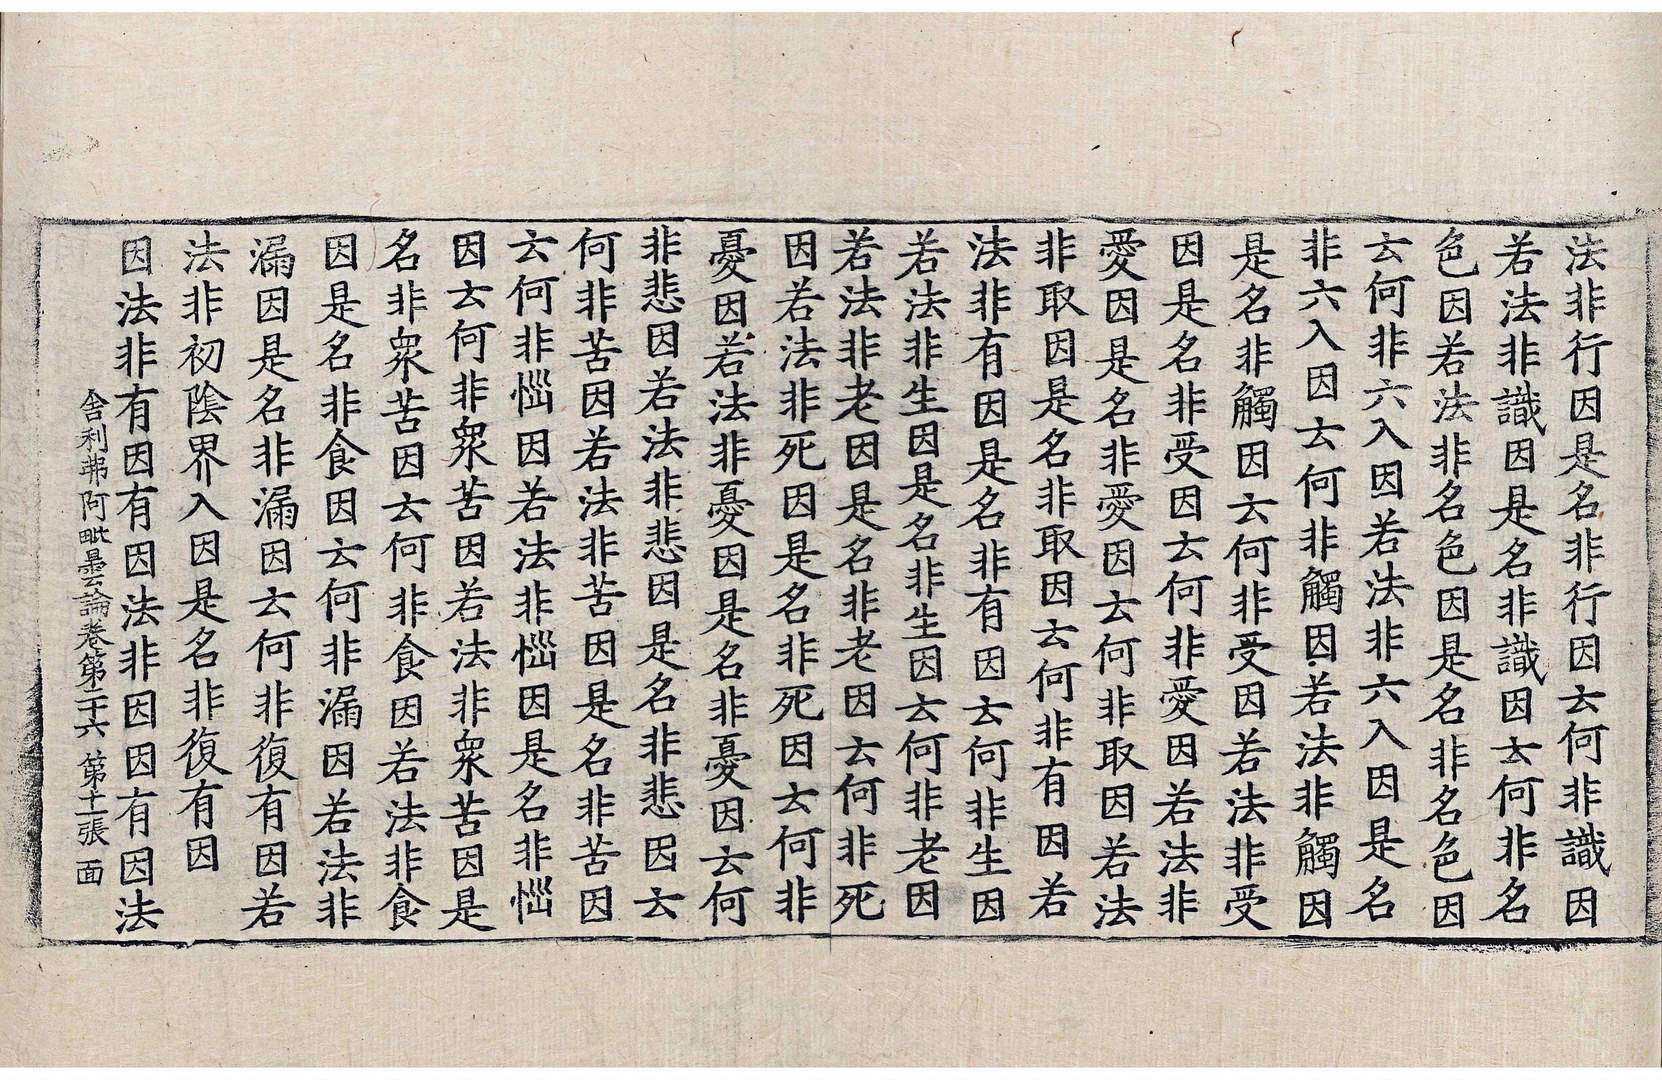 法非行因是名非行因云何非識因
若法非識因是名非識因云何非名
色因若法非名色因是名非名色因
云何非六入因若法非六入因是名
非六入因云何非觸因若法非觸因
是名非觸因云何非受因若法非受
因是名非受因云何非愛因若法非
愛因是名非愛因云何非取因若法
非取因是名非取因云何非有因若
法非有因是名非有因云何非生因
若法非生因是名非生因云何非老因
若法非老因是名非老因云何非死
因若法非死因是名非死因云何非
憂因若法非憂因是名非憂因云何
非悲因若法非悲因是名非悲因云
何非苦因若法非苦因是名非苦因
云何非惱因若法非惱因是名非惱
因云何非衆苦因若法非衆苦因是
名非衆苦因云何非食因若法非食
因是名非食因云何非漏因若法非
漏因是名非漏因云何非復有因若
法非初陰界入因是名非復有因
因法非有因有因法非因因有因法
舍利弗阿毗曇論卷第二十六 第十二張 面